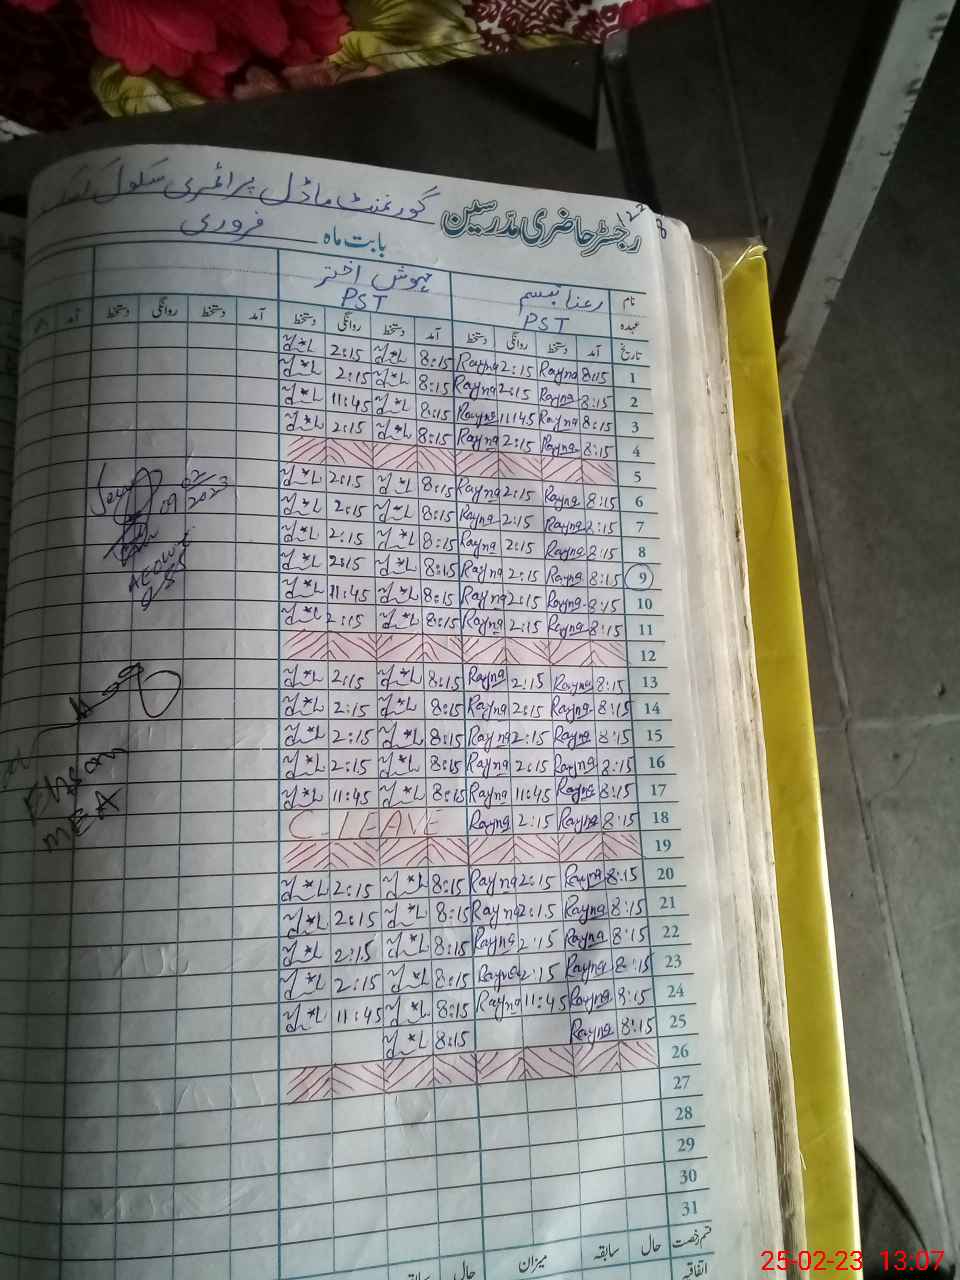 رجسٹر حاضری مدرسین گورنمنٹ ماڈل پرائمری سکول
بابت ماہ فروری
نام رعنا تبسم اختر
عہدہ PST PST
تاریخ آمد دستخط روانگی دستخط آمد دستخط روانگی دستخط آمد دستخط روانگی دستخط آمد
1 8:15 Rayna 2:15 Rayna 8:15 2:15
2 8:15 Rayna 2:15 Rayna 8:15 2:15
3 8:15 Rayna 11:45 Rayna 8:15 11:45
4 8:15 Rayna 2:15 Rayna 8:15 2:15
5
6 8:15 Rayna 2:15 Rayna 8:15 2:15
7 8:15 Rayna 2:15 Rayna 8:15 2:15
8 8:15 Rayna 2:15 Rayna 8:15 2:15
9 8:15 Rayna 2:15 Rayna 8:15 2:15
10 8:15 Rayna 2:15 Rayna 8:15 11:45
11 8:15 Rayna 2:15 Rayna 8:15 2:15
12
13 8:15 Rayna 2:15 Rayna 8:15 2:15
14 8:15 Rayna 2:15 Rayna 8:15 2:15
15 8:15 Rayna 2:15 Rayna 8:15 2:15
16 8:15 Rayna 2:15 Rayna 8:15 2:15
17 8:15 Rayna 11:45 Rayna 8:15 11:45
18 8:15 Rayna 2:15 Rayna C-LEAVE
19
20 8:15 Rayna 2:15 Rayna 8:15 2:15
21 8:15 Rayna 2:15 Rayna 8:15 2:15
22 8:15 Rayna 2:15 Rayna 8:15 2:15
23 8:15 Rayna 2:15 Rayna 8:15 2:15
24 8:15 Rayna 11:45 Rayna 8:15 11:45
25 8:15 Rayna 8:15
26
27
28
29
30
31
قسم رخصت حال سابقہ میزان حال
اتفاقیہ
09 02 2023
Ehsan
MEA
25-02-23 13:07